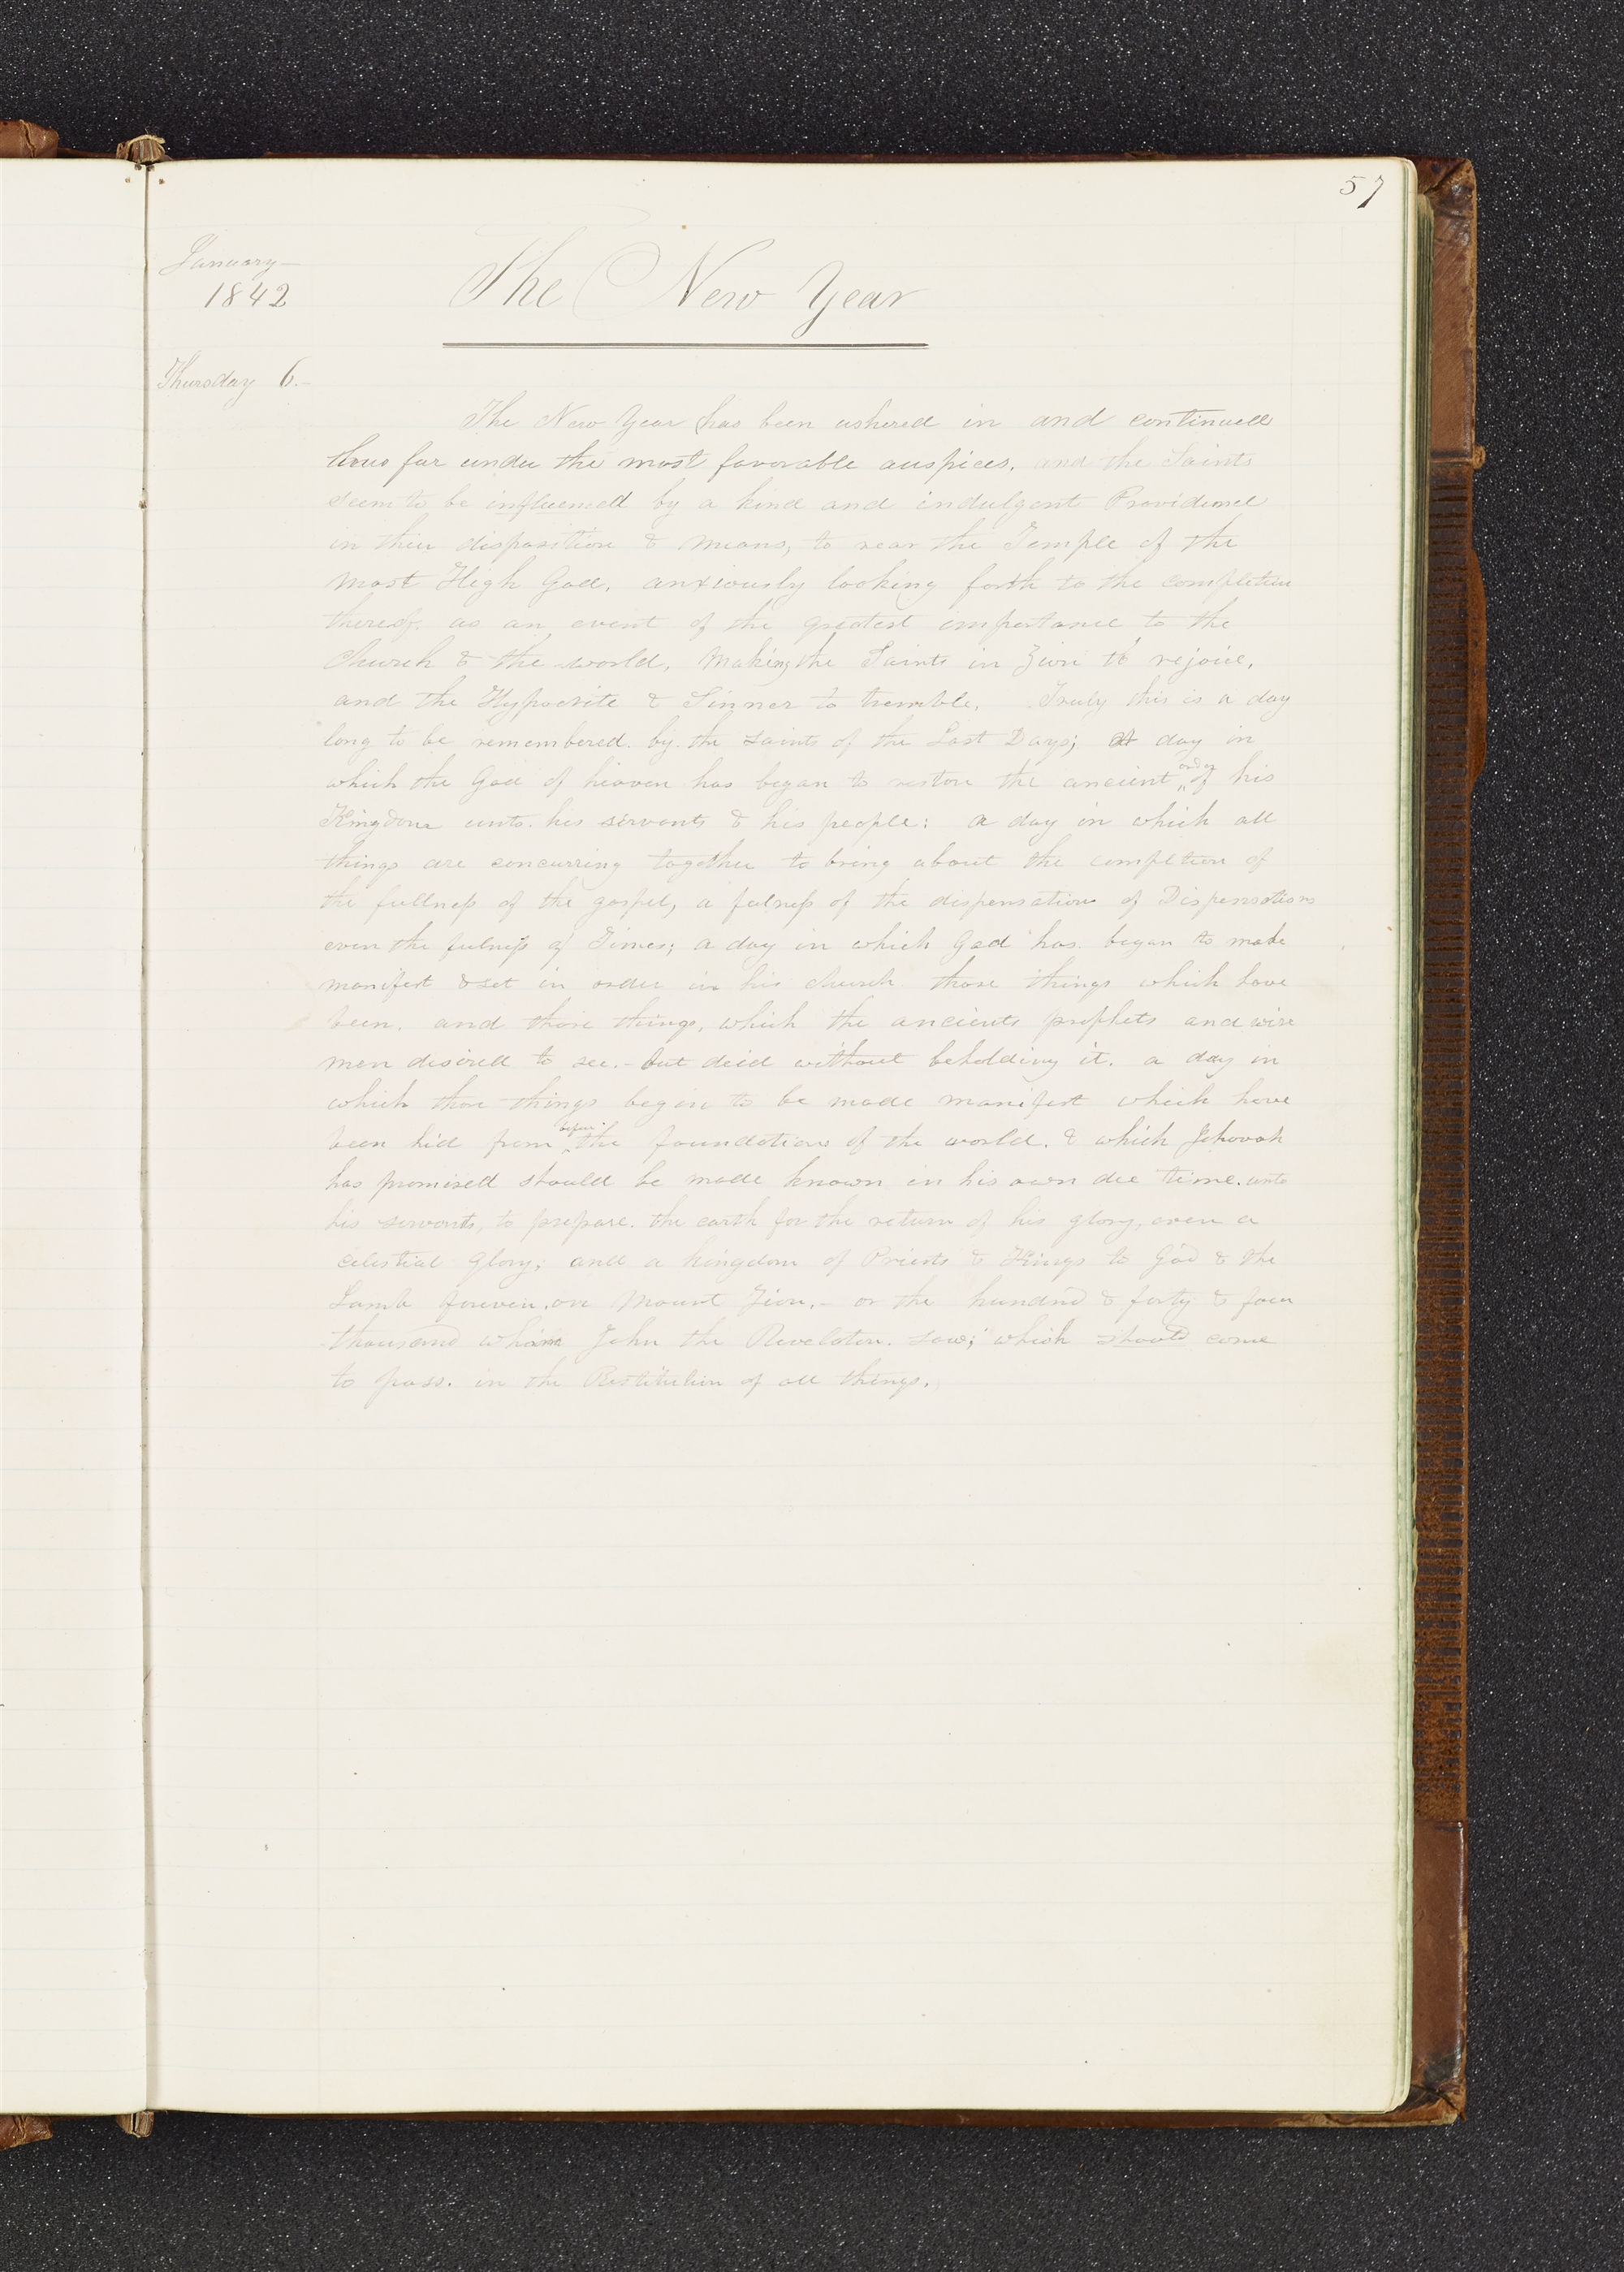 57
January—
1842
The New Year
Thursday 6.—
The New Year has been ushered in and continued
thus far under the most favorable auspices, and the Saints
seem to be influenced by a kind and indulgent Providence
in their disposition & means, to rear the Temple of the
most High God, anxiously looking forth to the completion
thereof. as an event of the greatest importance to the
Church & the world, Making the Saints in Zion to rejoice,
and the Hypocrite & Sinner to tremble, Truly this is a day
long to be remembered by the Saints of the Last Days; a day in
which the God of heaven has began to restore the ancient order of his
Kingdom unto his servants & his people: a day in which all
things are concurring together to bring about the completion of
the fullness of the gospel, a fulness of the dispensation of Dispensations
even the fulness of Times; a day in which God has began to make
manifest & set in order in his church those things which have
been. and those things, which the ancients prophets and wise
men desired to see.- but deid without beholding it. a day in
which those things begin to be made manifest which have
been hid from before. the foundations of the world. & which Jehovah
has promised should be made known in his own due time. unto
his servants, to prepare. the earth for the return of his glory, even a
celestial glory; and a kingdom of Priests & Kings to God & the
Lamb forever, on Mount Zion,- or the hundred & forty & four
thousand whom John the Revelator. saw; which should come
to pass. in the Restitution of all things.